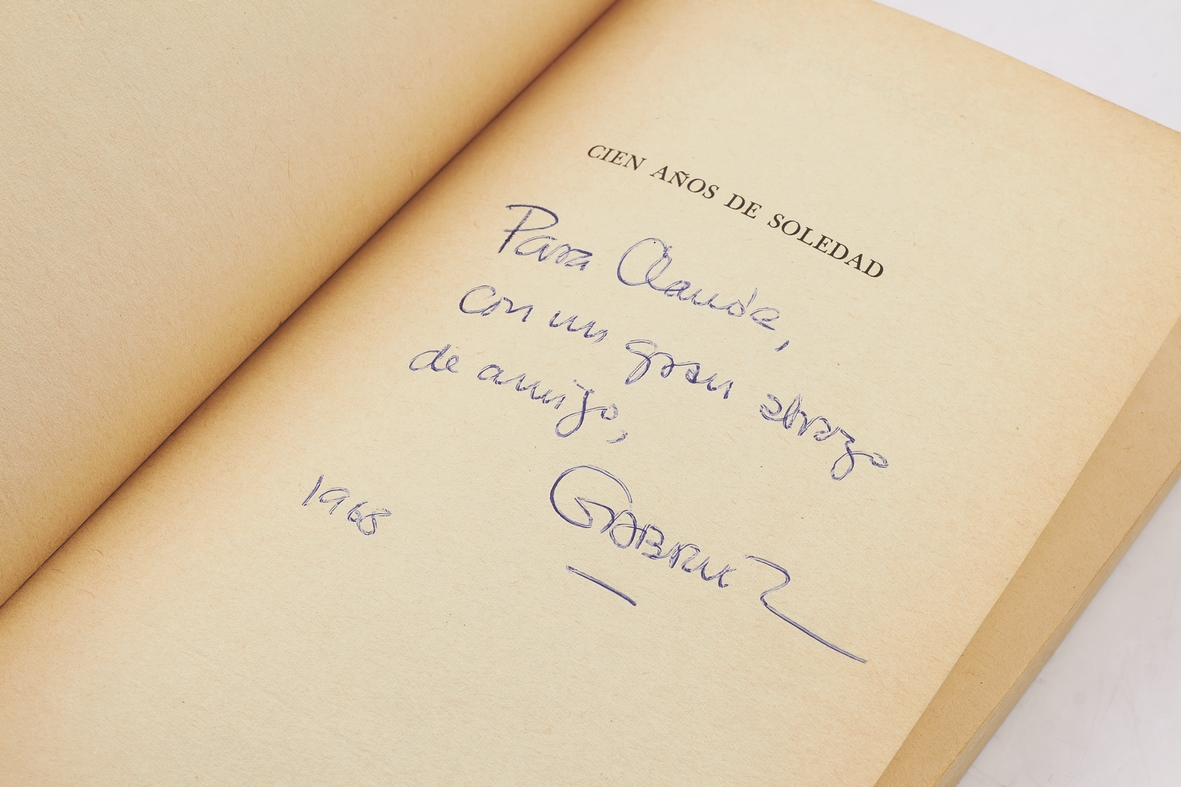 CIEN AÑOS DE SOLEDAD
Para Claude,
con un gran abrazo
de amigo,
1968